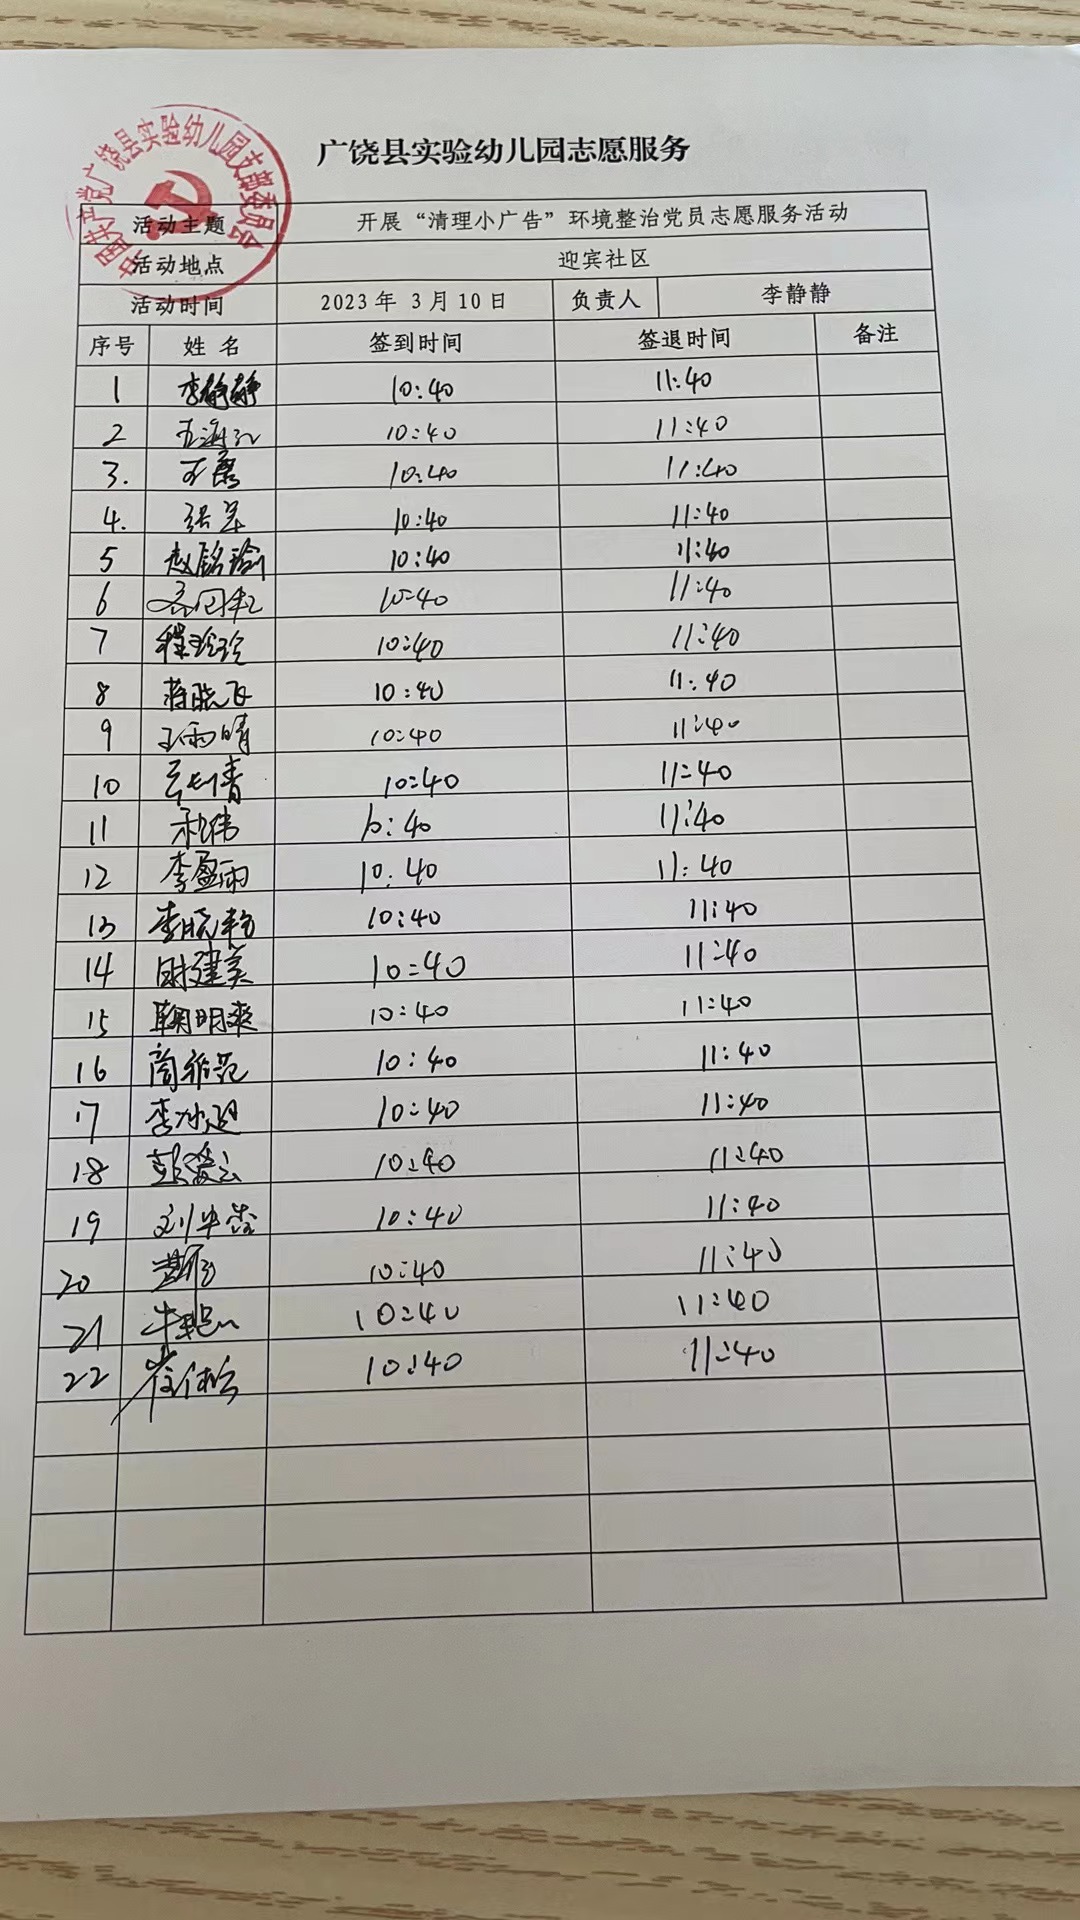 广饶县实验幼儿园志愿服务
中国共产党广饶县实验幼儿园支部委员会
活动主题 开展“清理小广告”环境整治党员志愿服务活动
活动地点 迎宾社区
活动时间 2023年 3月10日 负责人 李静静
序号 姓名 签到时间 签退时间 备注
1 李静静 10:40 11:40
2 10:40 11:40
3. 王磊 10:40 11:40
4. 10:40 11:40
5 赵铭瑜 10:40 11:40
6 10:40 11:40
7 程玲玲 10:40 11:40
8 蒋晓飞 10:40 11:40
9 王雨晴 10:40 11:40
10 10:40 11:40
11 10:40 11:40
12 李盈雨 10:40 11:40
13 10:40 11:40
14 10:40 11:40
15 鞠明爽 10:40 11:40
16 10:40 11:40
17 10:40 11:40
18 彭爱云 10:40 11:40
19 10:40 11:40
20 10:40 11:40
21 10:40 11:40
22 10:40 11:40